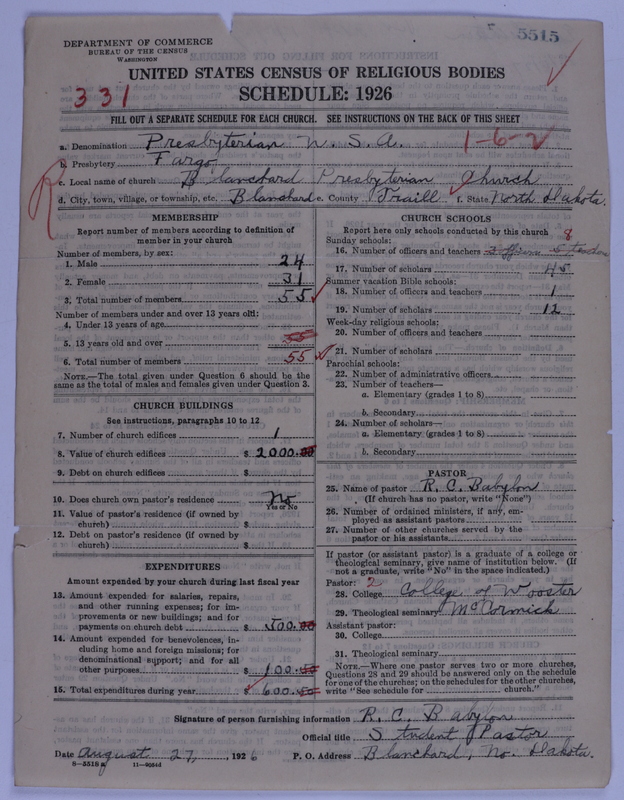 5515
DEPARTMENT OF COMMERCE
BUREAU OF THE CENSUS
WASHINGTON
UNITED STATES CENSUS OF RELIGIOUS BODIES
331
SCHEDULE: 1926
FILL OUT A SEPARATE SCHEDULE FOR EACH CHURCH. SEE INSTRUCTIONS ON THE BACK OF THIS SHEET
a. Denomination Presbyterian U. S. A. 1-6-2
b. Presbytery Fargo
c. Local name of church Blanchard Presbyterian Church
d. City, town, village, or township, etc. Blanchard e. County Traill f. State North Dakota.
MEMBERSHIP
Report number of members according to definition of
member in your church
Number of members, by sex:
1. Male 24
2. Female 31
3. Total number of members 55
Number of members under and over 13 years old:
4. Under 13 years of age
5. 13 years old and over 55
6. Total number of members 55
NOTE.—The total given under Question 6 should be the
same as the total of males and females given under Question 3.
CHURCH BUILDINGS
See instructions, paragraphs 10 to 12
7. Number of church edifices 1
8. Value of church edifices $ 2000.00
9. Debt on church edifices $
10. Does church own pastor's residence No
Yes or No
11. Value of pastor's residence (if owned by
church) $
12. Debt on pastor's residence (if owned by
church) $
EXPENDITURES
Amount expended by your church during last fiscal year
13. Amount expended for salaries, repairs,
and other running expenses; for im-
provements or new buildings; and for
payments on church debt $ 500.00
14. Amount expended for benevolences, in-
cluding home and foreign missions; for
denominational support; and for all
other purposes $ 100.50
15. Total expenditures during year $ 600.50
CHURCH SCHOOLS
Report here only schools conducted by this church
Sunday schools: 8
16. Number of officers and teachers 3 officers 5 teachers
17. Number of scholars 45
Summer vacation Bible schools:
18. Number of officers and teachers 1
19. Number of scholars 12
Week-day religious schools:
20. Number of officers and teachers
21. Number of scholars
Parochial schools:
22. Number of administrative officers
23. Number of teachers—
a. Elementary (grades 1 to 8)
b. Secondary
24. Number of scholars—
a. Elementary (grades 1 to 8)
b. Secondary
PASTOR
25. Name of pastor R. C. Babylon
(If church has no pastor, write "None")
26. Number of ordained ministers, if any, em-
ployed as assistant pastors
27. Number of other churches served by the
pastor or his assistants
If pastor (or assistant pastor) is a graduate of a college or
theological seminary, give name of institution below. (If
not a graduate, write "No" in the space indicated.)
Pastor: 2
28. College College of Wooster
29. Theological seminary McCormick
Assistant pastor:
30. College
31. Theological seminary
NOTE.—Where one pastor serves two or more churches,
Questions 28 and 29 should be answered only on the schedule
for one of the churches; on the schedules for the other churches,
write "See schedule for church."
Signature of person furnishing information R. C. Babylon
Official title Student Pastor
Date August 27, 1926 P. O. Address Blanchard, No. Dakota.